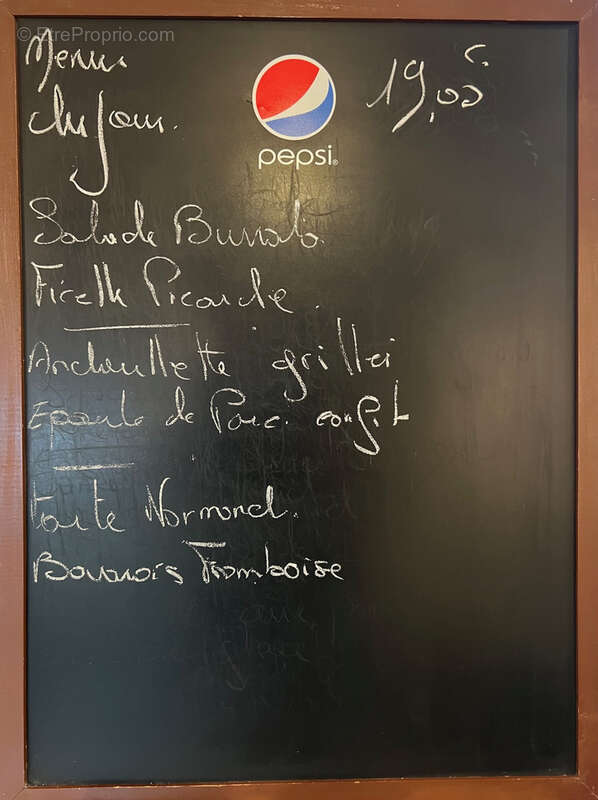 © EtreProprio.com
Menu
du jour.
19,00 €
pepsi®
Salade Burrata
Ficelle Picarde.
Andouillette grillée
Epaule de Porc confit
tarte Normand.
Bavarois Framboise